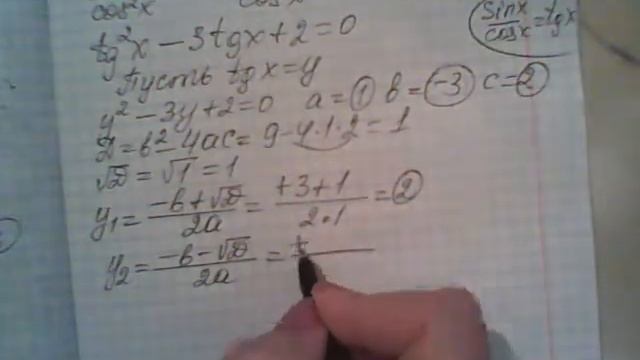 cos²x cosx
sinx/cosx = tgx
tg²x − 3tgx + 2 = 0
Пусть tgx = y
y² − 3y + 2 = 0 a = 1 b = −3 c = 2
D = b² − 4ac = 9 − 4·1·2 = 1
√D = √1 = 1
y₁ = (−b + √D)/2a = (+3+1)/2·1 = 2
y₂ = (−b − √D)/2a = +